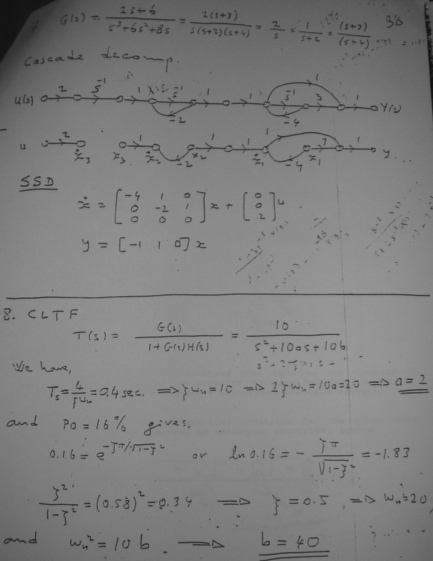 G(s) = 2s+6 / s³+6s²+8s = 2(s+3) / s(s+2)(s+4) = 2/s × 1/s+2 × (s+3)/(s+4)
Cascade decomp.
U(s) 2 s⁻¹ 1 s⁻¹ 1 1 1 s⁻¹ 3 1 Y(s)
-2 -4 1
u 2 ẋ₃ x₃ 1 ẋ₂ x₂ 1 1 ẋ₁ x₁ 3 1 y
-2 -4 1
SSD
ẋ = [-4 1 0; 0 -2 1; 0 0 0] x + [0; 0; 2] u
y = [-1 1 0] x
8. CLTF
T(s) = G(s) / 1+G(s)H(s) = 10 / s²+10as+10b
We have,
Ts = 4/ζωn = 0.4 sec. ⇒ ζωn = 10 ⇒ 2ζωn = 10a = 20 ⇒ a = 2
and PO = 16% gives,
0.16 = e^(-ζπ/√1-ζ²) or ln 0.16 = - ζπ / √1-ζ² = -1.83
ζ² / 1-ζ² = (0.58)² = 0.34 ⇒ ζ = 0.5, ⇒ ωn = 20,
and ωn² = 10 b. ⇒ b = 40